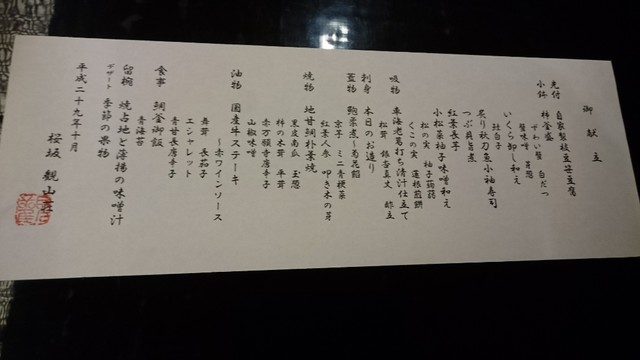 御献立
先付 自家製枝豆笹豆腐
小鉢 柿釜盛
ずわい蟹 白だつ
蟹味噌 芽葱
いくら卸し和え
紅白子
炙り秋刀魚小袖寿司
つぶ貝旨煮
紅葉長芋
小松菜柚子味噌和え
松の実 柚子蒟蒻
くこの実 蓮根煎餅
吸物 車海老葛打ち清汁仕立て
松茸 銀杏真丈 酢立
刺身 本日のお造り
蓋物 鮑柔煮〜菊花餡
京芋 ミニ青梗菜
紅葉人参 叩き木の芽
焼物 地甘鯛朴葉焼
里皮南瓜 玉葱
柿の木茸 平茸
赤万願寺唐辛子
山椒味噌
油物 国産牛ステーキ
〜赤ワインソース
舞茸 長茄子
エシャレット
青甘長唐辛子
食事 鯛釜御飯
青海苔
留椀 焼占地と薄揚の味噌汁
デザート 季節の果物
平成二十九年十月
桜坂 観山荘